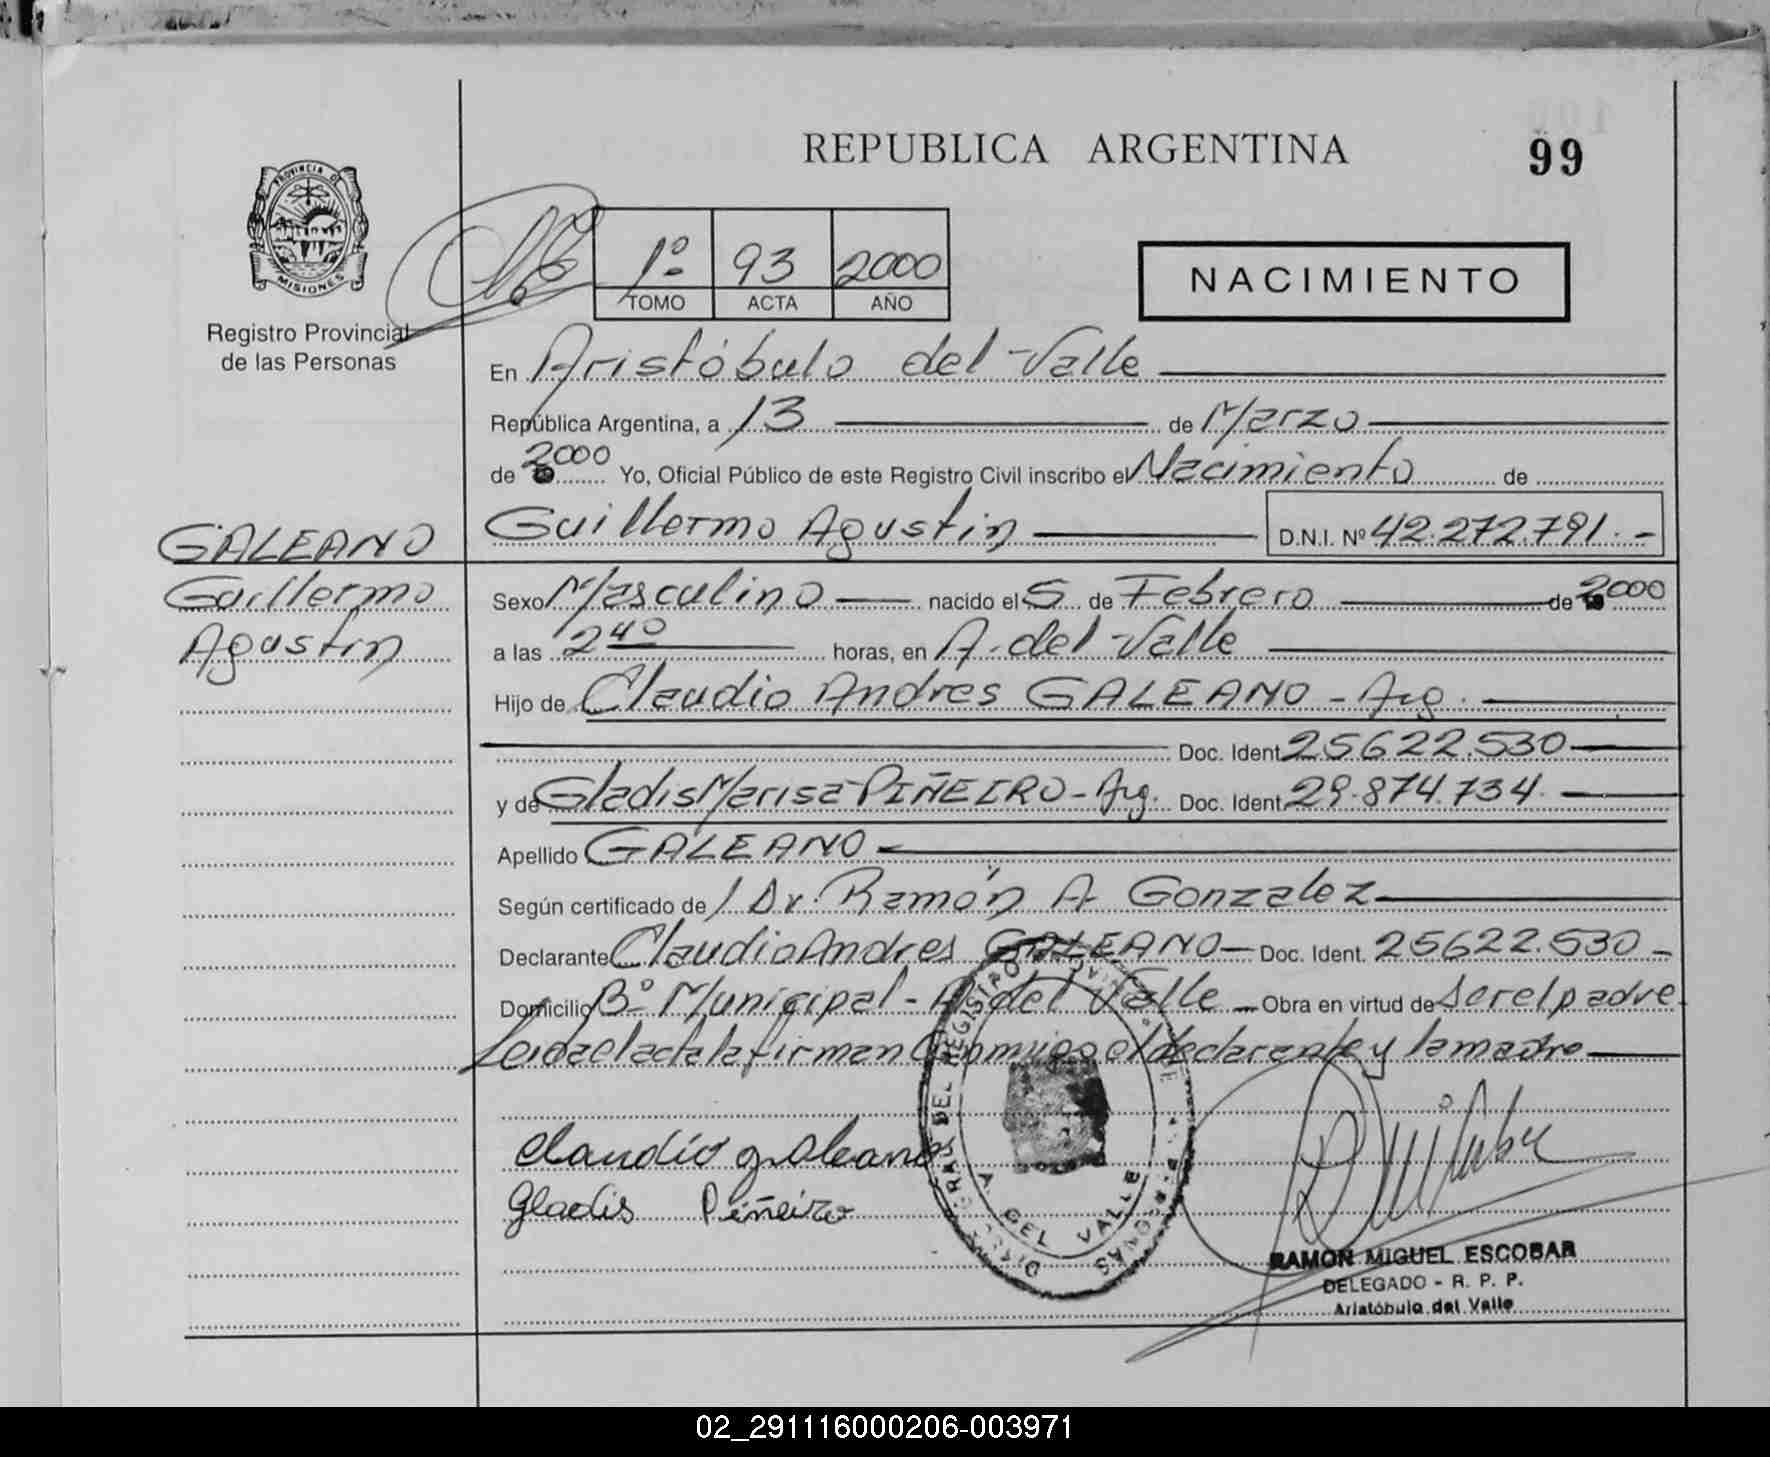 REPUBLICA ARGENTINA
99
PROVINCIA DE
MISIONES
Registro Provincial
de las Personas
1º 93 2000
TOMO ACTA AÑO
NACIMIENTO
En Aristóbulo del Valle
República Argentina, a 13 de Marzo
de 2000 Yo, Oficial Público de este Registro Civil inscribo el Nacimiento de
Guillermo Agustin D.N.I. Nº 42.272.791.-
GALEANO
Guillermo
Agustin
Sexo Masculino nacido el 5 de Febrero de 2000
a las 2 40 horas, en A. del Valle
Hijo de Claudio Andres GALEANO - Arg.
Doc. Ident. 25622.530
y de Gladis Marisa PIÑEIRO - Arg. Doc. Ident. 29.874.734
Apellido GALEANO
Según certificado de / Dr. Ramón A Gonzalez
Declarante Claudio Andres GALEANO Doc. Ident. 25622.530
Domicilio Bº Municipal - A. del Valle Obra en virtud de ser el padre
Leida el acta la firman conmigo el declarante y la madre
Claudio galeano
Gladis Piñeiro
A. DEL VALLE
RAMON MIGUEL ESCOBAR
DELEGADO - R. P. P.
Aristóbulo del Valle
02_291116000206-003971